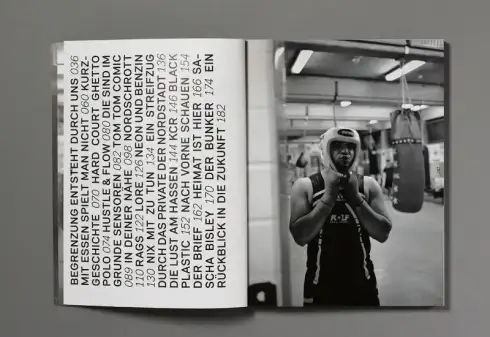 BEGRENZUNG ENTSTEHT DURCH UNS 036
MIT ESSEN SPIELT MAN NICHT 060 KURZ-
GESCHICHTE 070 HARD COURT GHETTO
POLO 074 HUSTLE & FLOW 080 DIE SIND IM
GRUNDE SENSOREN 082 TOMTOM COMIC
089 IN DEINER NÄHE 098 MORDSCHROTT
110 RAGS 122 LORE 126 NEON UND BENZIN
130 NIX MIT ZU TUN 134 EIN STREIFZUG
DURCH DAS PRIVATE DER NORDSTADT 136
DIE LUST AM HASSEN 144 KCR 146 BLACK
PLASTIC 152 NACH VORNE SCHAUEN 154
DER BRIEF 162 HEIMAT IST HIER 166 SA-
SCHA BISLEY 170 DER BUNKER 174 EIN
RÜCKBLICK IN DIE ZUKUNFT 182